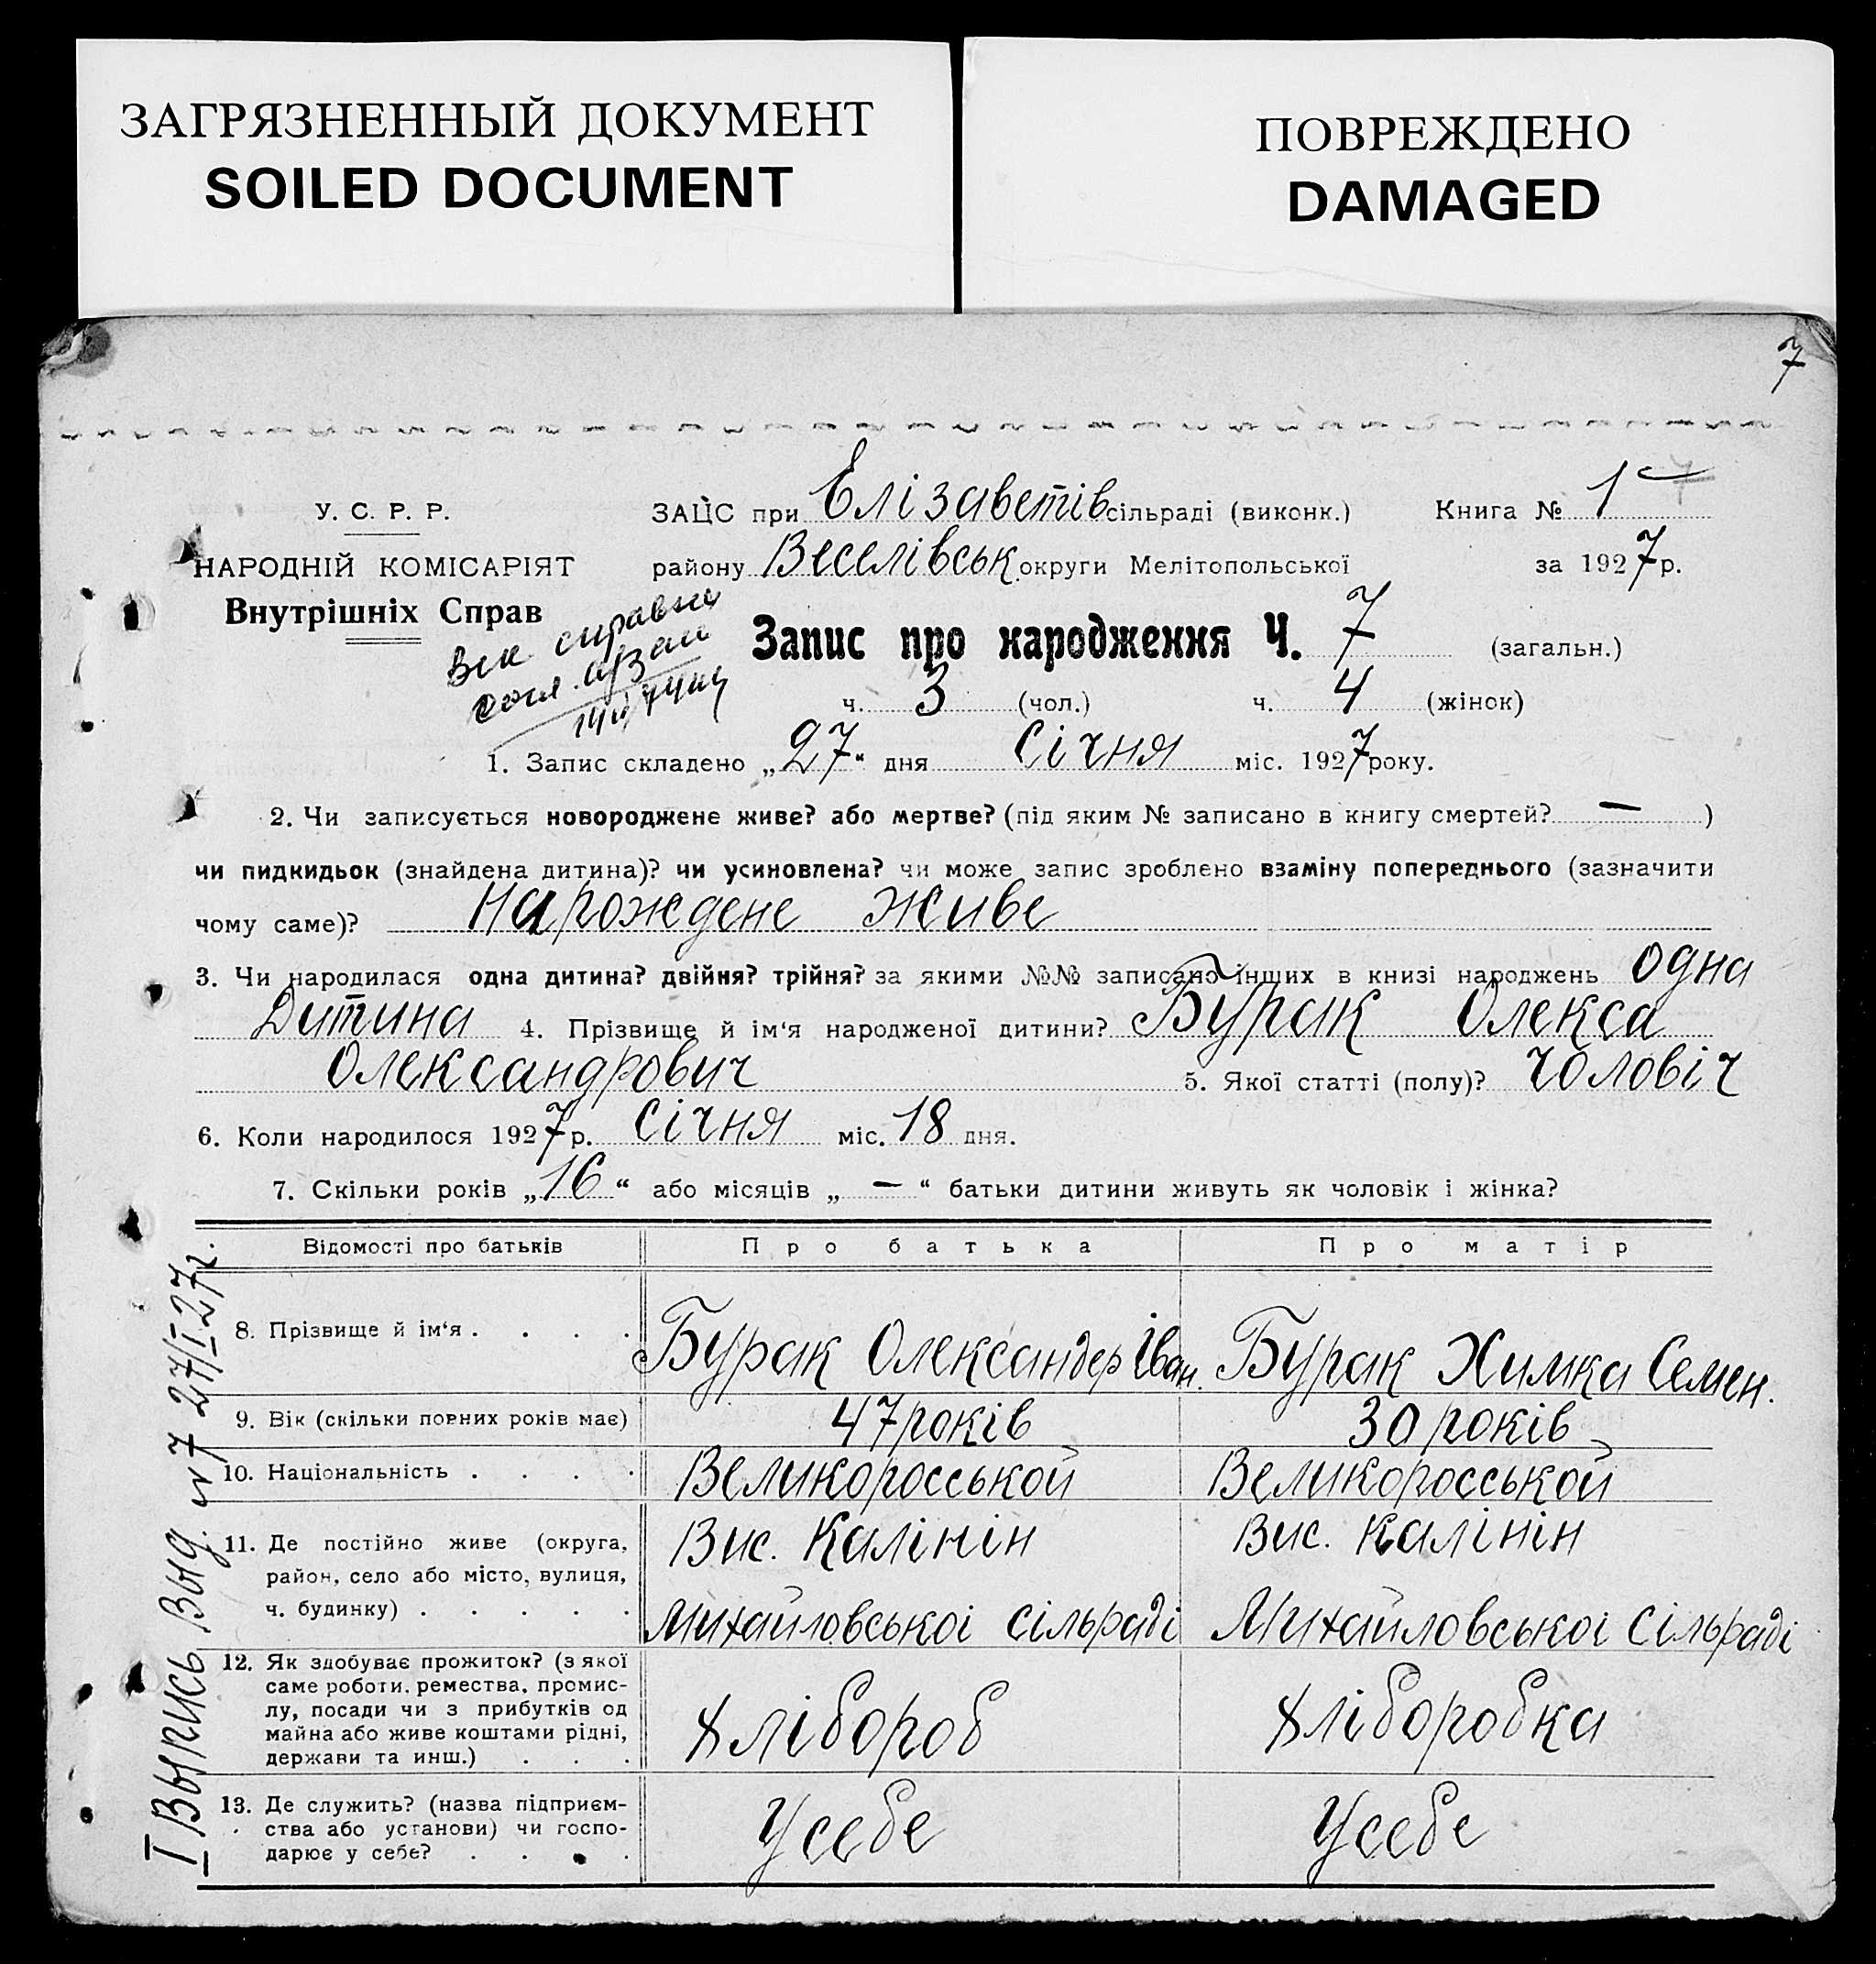 ЗАГРЯЗНЕННЫЙ ДОКУМЕНТ
SOILED DOCUMENT
ПОВРЕЖДЕНО
DAMAGED
7
У. С. Р. Р.
НАРОДНІЙ КОМІСАРІЯТ
Внутрішніх Справ
ЗАЦС при Елізаветів сільраді (виконк.) Книга № 1
району Веселівськ округи Мелітопольської за 1927 р.
Запис про народження Ч. 7 (загальн.)
ч. 3 (чол.) ч. 4 (жінок)
1. Запис складено „27“ дня Січня міс. 1927 року.
2. Чи записується новороджене живе? або мертве? (під яким № записано в книгу смертей? — )
чи пидкидьок (знайдена дитина)? чи усиновлена? чи може запис зроблено взаміну попереднього (зазначити
чому саме)? Нарождене живе
3. Чи народилася одна дитина? двійня? трійня? за якими №№ записано інших в книзі народжень одна
Дитина 4. Прізвище й ім'я народженої дитини? Бурак Олекса
Олександрович 5. Якої статті (полу)? Чоловіч
6. Коли народилося 1927 р. Січня міс. 18 дня.
7. Скільки років „16“ або місяців „—“ батьки дитини живуть як чоловік і жінка?
Відомості про батьків Про батька Про матір
8. Прізвище й ім'я . . . . Бурак Олександер Іван. Бурак Химка Семен.
9. Вік (скільки повних років має) 47 років 30 років
10. Національність . . . . Великоросськой Великоросськой
11. Де постійно живе (округа, Вис. Калінін Вис. Калінін
район, село або місто, вулиця,
ч. будинку) . . . . . Михайловської сільраді Михайловської сільраді
12. Як здобуває прожиток? (з якої
саме роботи, ремества, промис-
лу, посади чи з прибутків од Хлібороб Хліборобка
майна або живе коштами рідні,
держави та инш.) . . .
13. Де служить? (назва підприєм-
ства або установи) чи госпо- У себе У себе
дарює у себе? . . . .
I Выпись выд. №7 27/I 27г.